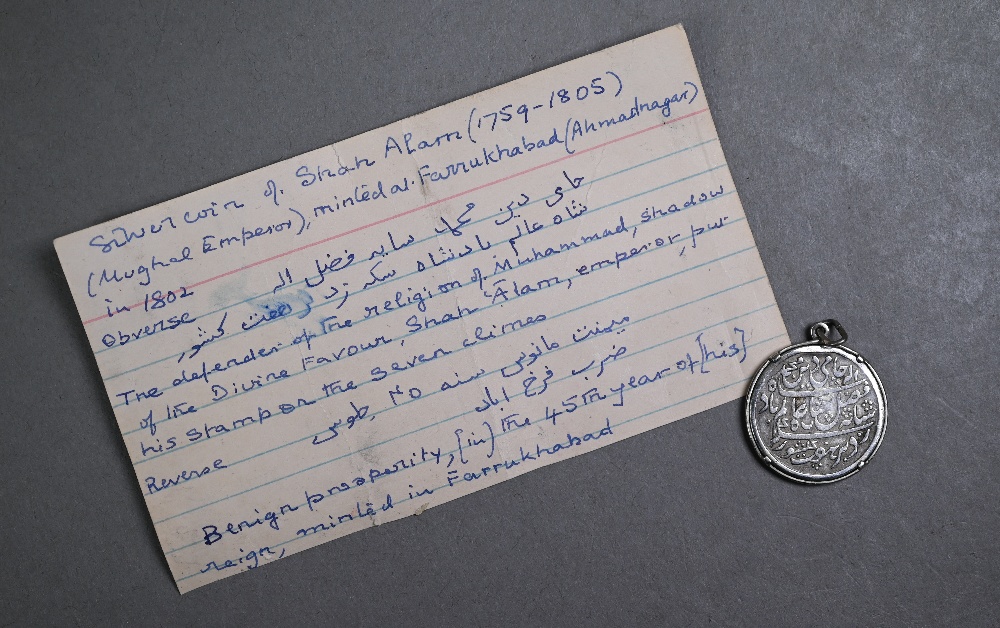 Silver coin of Shah Alam (1759-1805)
(Mughal Emperor), minted at Farrukhabad (Ahmadnagar)
in 1802
Obverse
حامی دین محمد سایہ فضل الہ
شاہ عالم بادشاہ سکہ زد بر ھفت کشور
The defender of the religion of Muhammad, shadow
of the Divine Favour, Shah 'Alam, emperor, put
his stamp on the seven climes
Reverse
میمنت مانوس سنہ ٤٥ جلوس
ضرب فرخ اباد
Benign prosperity, [in] the 45th year of [his]
reign, minted in Farrukhabad